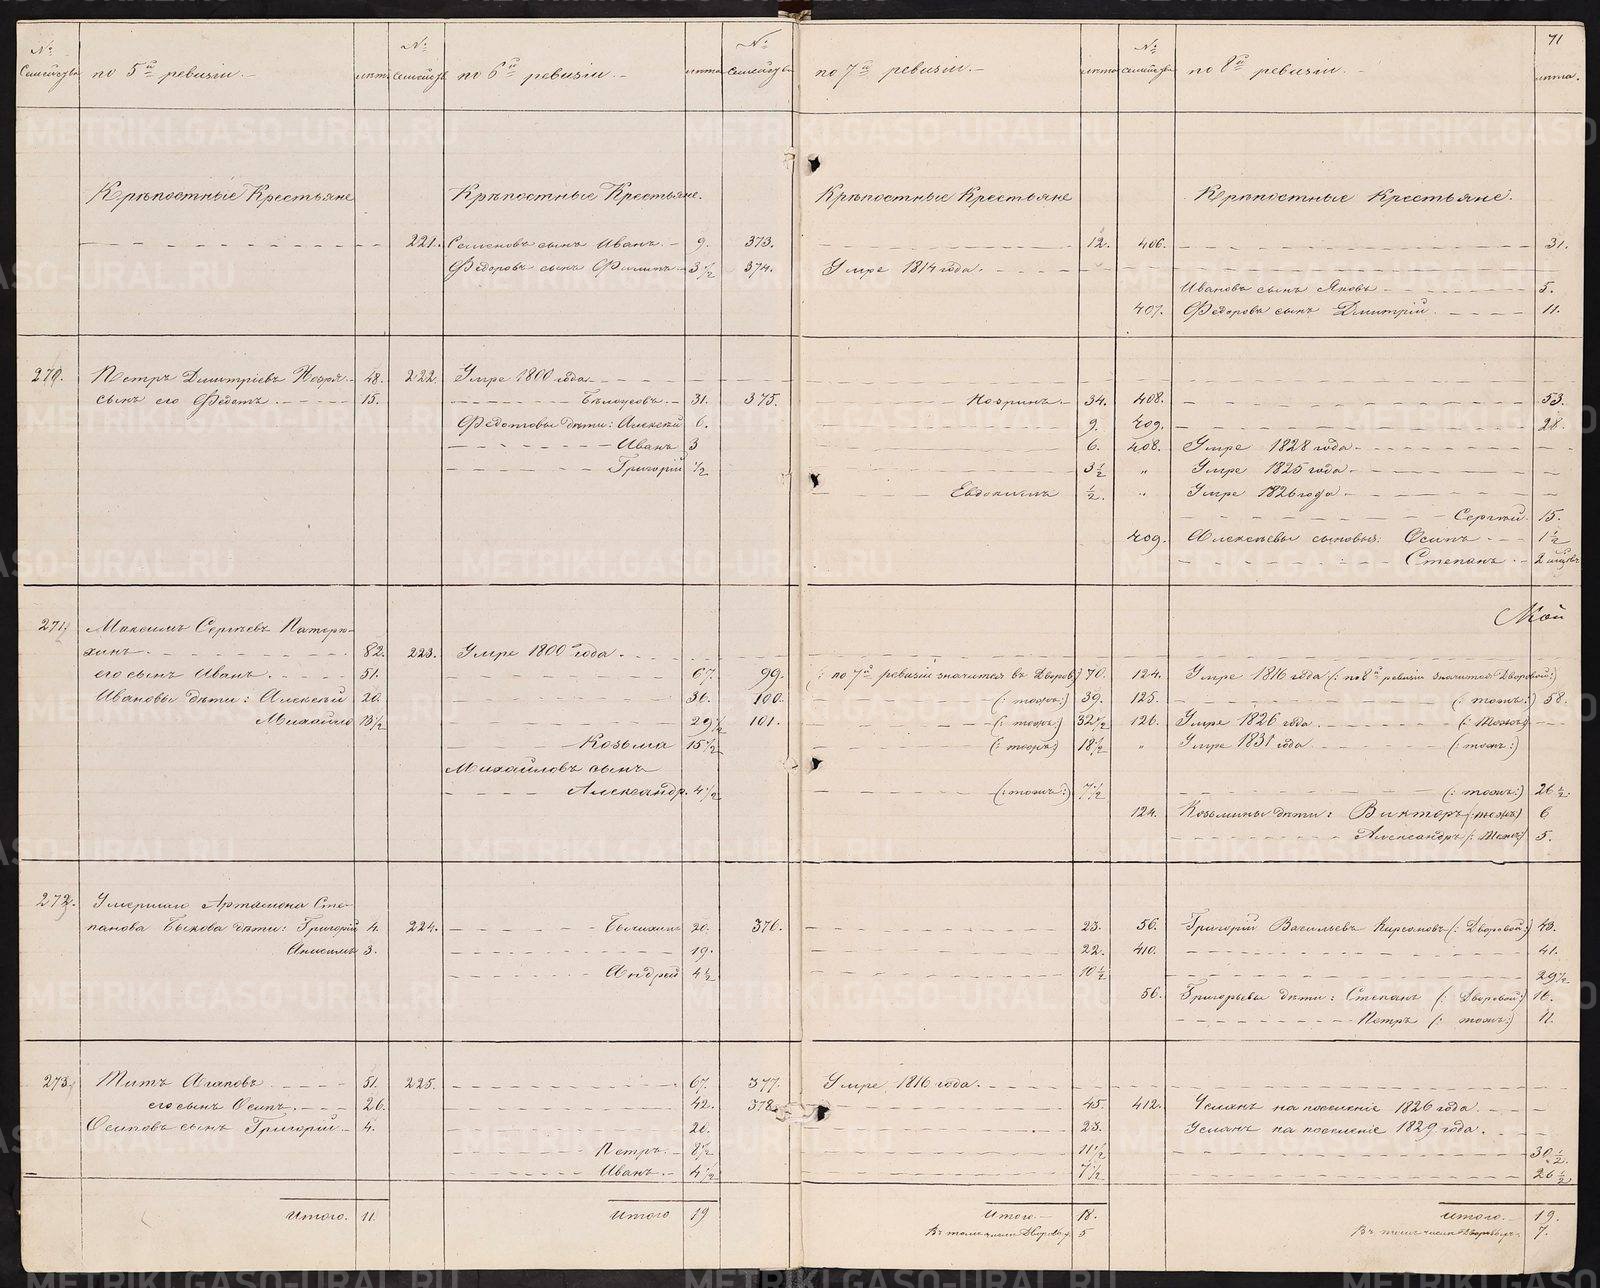 71
№ семейства по 5й ревизіи.— лѣта № семейств по 6й ревизіи.— лѣта № семейства по 7й ревизіи.— лѣта № семейств по 8й ревизіи.— лѣта.
Крѣпостные Крестьяне Крѣпостные Крестьяне. Крѣпостные Крестьяне Крѣпостные Крестьяне.
221. Семеновъ сынъ Иванъ.— 9. 373. 12. 406. 31.
Федоровъ сынъ Филипъ— 3½ 374. Умре 1814 года.
Ивановъ сынъ Яковъ 5.
407. Федоровъ сынъ Дмитрій. 11.
270. Петръ Дмитріевъ 48. 222. Умре 1800 года
сынъ его Федотъ. 15. Бѣлоусовъ.— 31. 375. 34. 408. 53.
Федотовы дѣти: Алексѣй 6. 9. 409. 28.
Иванъ 3 6. 408. Умре 1828 года.
Григорій ½ 3½ „ Умре 1825 года.
Евдокимъ ½. „ Умре 1826 года
Сергѣй. 15.
409. Алексѣевы сыновья: Осипъ 1½
Степанъ.— 2
271. Максимъ Сергѣевъ
хинъ. 82. 223. Умре 1800 года.
его сынъ Иванъ. 51. 67. 99. (: по 7й ревизіи значится въ Дворов:) 70. 124. Умре 1816 года (: по 8й ревизіи значится Дворовой:)
Ивановы дѣти: Алексѣй 20. 36. 100. (: тожъ:) 39. 125. (: тожъ:) 58.
Михайло 13½ 29½ 101. (: тожъ:) 32½ 126. Умре 1826 года. (: тожъ:)
Козьма 15½ (: тожъ:) 18½ „ Умре 1831 года (: тожъ:)
Михайловъ сынъ
Александр. 4½ (: тожъ:) 7½ (: тожъ:) 26½.
124. Козьмины дѣти: Викторъ (: тожъ:) 6
Александръ (: тожъ:) 5.
272. Умершаго Артамона Сте-
панова Быкова дѣти: Григорій 4. 224. 20. 376. 23. 56. Григорій Васильевъ Кирсановъ (: Дворовой:) 43.
Анисимъ 3. 19. 22. 410. 41.
Андрей 4½ 10½ 29½
56. Григорьевы дѣти: Степанъ (: Дворовой:) 16.
Петръ (: тожъ:) 11.
273. Титъ Агаповъ 51. 225. 67. 377. Умре 1816 года.
его сынъ Осипъ. 26. 42. 378. 45. 412. Усланъ на поселеніе 1826 года.
Осиповъ сынъ Григорій— 4. 20. 23. Усланъ на поселеніе 1829 года.
Петръ.— 8½ 11½ 30½.
Иванъ.— 4½ 7½ 26½
Итого. 11. Итого 19 Итого.— 18. Итого.— 19.
Въ томъ числѣ Дворовых. 5 Въ томъ числѣ Дворовыхъ. 7.
METRIKI.GASO-URAL.RU